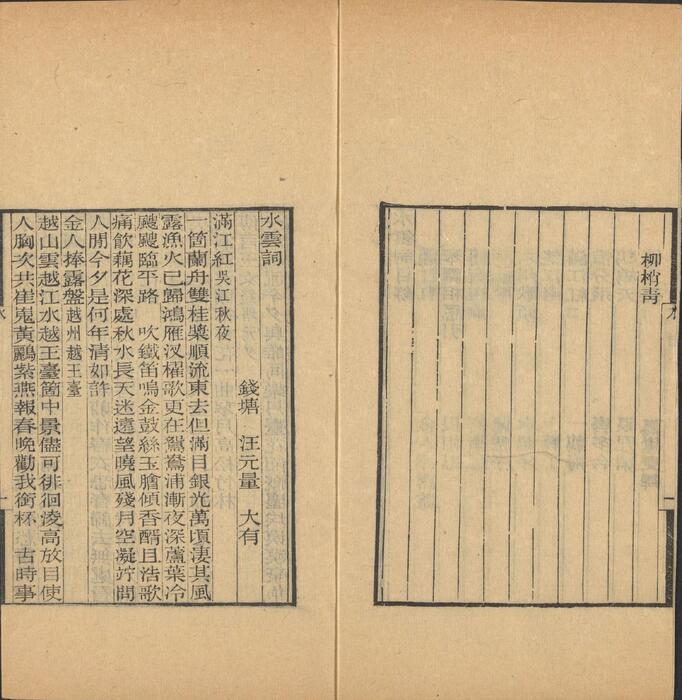 柳梢青
水
一
水雲詞
錢塘 汪元量 大有
滿江紅吳江秋夜
一箇蘭舟雙桂槳順流東去但滿目銀光萬頃淒其風
露漁火已歸鴻雁汊櫂歌更在鴛鴦浦漸夜深蘆葉冷
颼颼臨平路 吹鐵笛鳴金鼓絲玉膾傾香醑且浩歌
痛飲藕花深處秋水長天迷遠望曉風殘月空凝竚問
人閒今夕是何年清如許
金人捧露盤越州越王臺
越山雲越江水越王臺箇中景儘可徘徊淩高放目使
人胸次共崔嵬黃鸝紫燕報春晚勸我銜杯 古時事
水
一